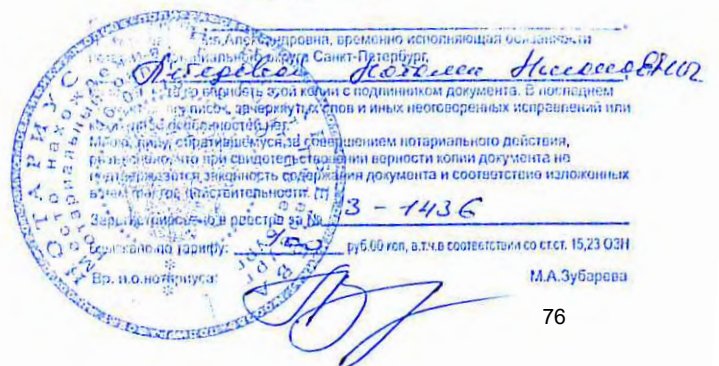 Александровна, временно исполняющая обязанности
нотариального округа Санкт-Петербург,
Наталии Николаевны
верность этой копии с подлинником документа. В последнем
приписок, зачеркнутых слов и иных неоговоренных исправлений или
особенностей нет.
Мною, лицу, обратившемуся за совершением нотариального действия,
разъяснено, что при свидетельствовании верности копии документа не
подтверждается законность содержания документа и соответствие изложенных
в нем фактов действительности. [1]
Зарегистрировано в реестре за № 3-1436
Взыскано по тарифу: руб.00 коп, в.т.ч.в соответствии со ст.ст. 15,23 ОЗН
Вр. и.о.нотариуса: М.А.Зубарева
76
НОТАРИУС